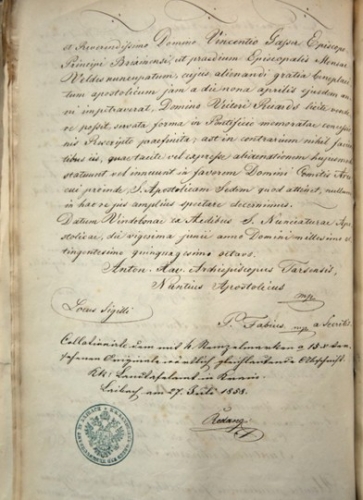 a Reverendissimo Domino Vincentio Gasser Episcopo
Principi Brixinensi, ut praedium Episcopalis Mensae
Veldes nuncupatum, cujus alienandi gratia
tum apostolicum jam a die nona aprilis ejusdem an
ni impetraverat, Domino Ricardo licite vende
re possit, servata forma in Pontificio memoratae conces
nis Rescripto praefinita; ast in contrarium nihil
tibus iis, quae tacite vel expresse alienationem hujusmodi
statuunt vel innuunt in favorem Domini Comitis
cui proinde S. Apostolicam Sedem quod attinet, nullum
in hac re jus amplius spectare decernimus.
Datum Vindobonae ex Aedibus S. Nunciaturae Ap
stolicae, die vigesima junii anno Domini millesimo oc
tingentesimo quinquagesimo octavo.
Anton. Archiepiscopus Tarsensis,
Nuntius Apostolicus
mp.
Locus Sigilli
P. Fabius, mp a Secretis
dem mit
Originale gleichlautende Abschrift.
KK: Landtafelamt in Krain.
Laibach am 27. Juli 1858.